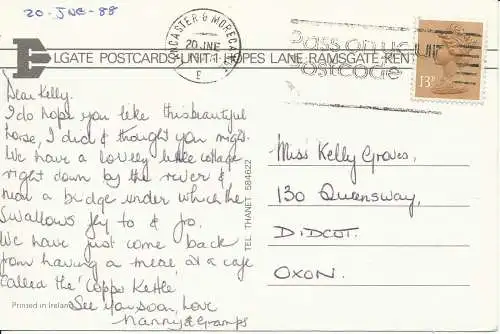 20-JNE-88
LANCASTER & MORECAMBE
20 JNE
E
Pass on your
postcode
13P
E
ELGATE POSTCARDS UNIT 1 HOPES LANE RAMSGATE KEN
Dear Kelly.
I do hope you like this beautiful
horse, I did & thought you might.
We have a lovely little cottage
right down by the river &
near a bridge under which the
Swallows fly to & fro.
We have just come back
from having a meal at a cafe
called the 'Copper Kettle'
See you soon, love
Nanny & Gramps
Printed in Ireland
TEL. THANET 584622
Miss Kelly Graves,
130 Queensway,
DIDCOT.
OXON.